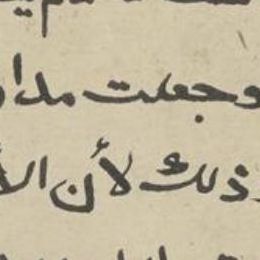 وجعلت مدار
وذلك لأن الأ